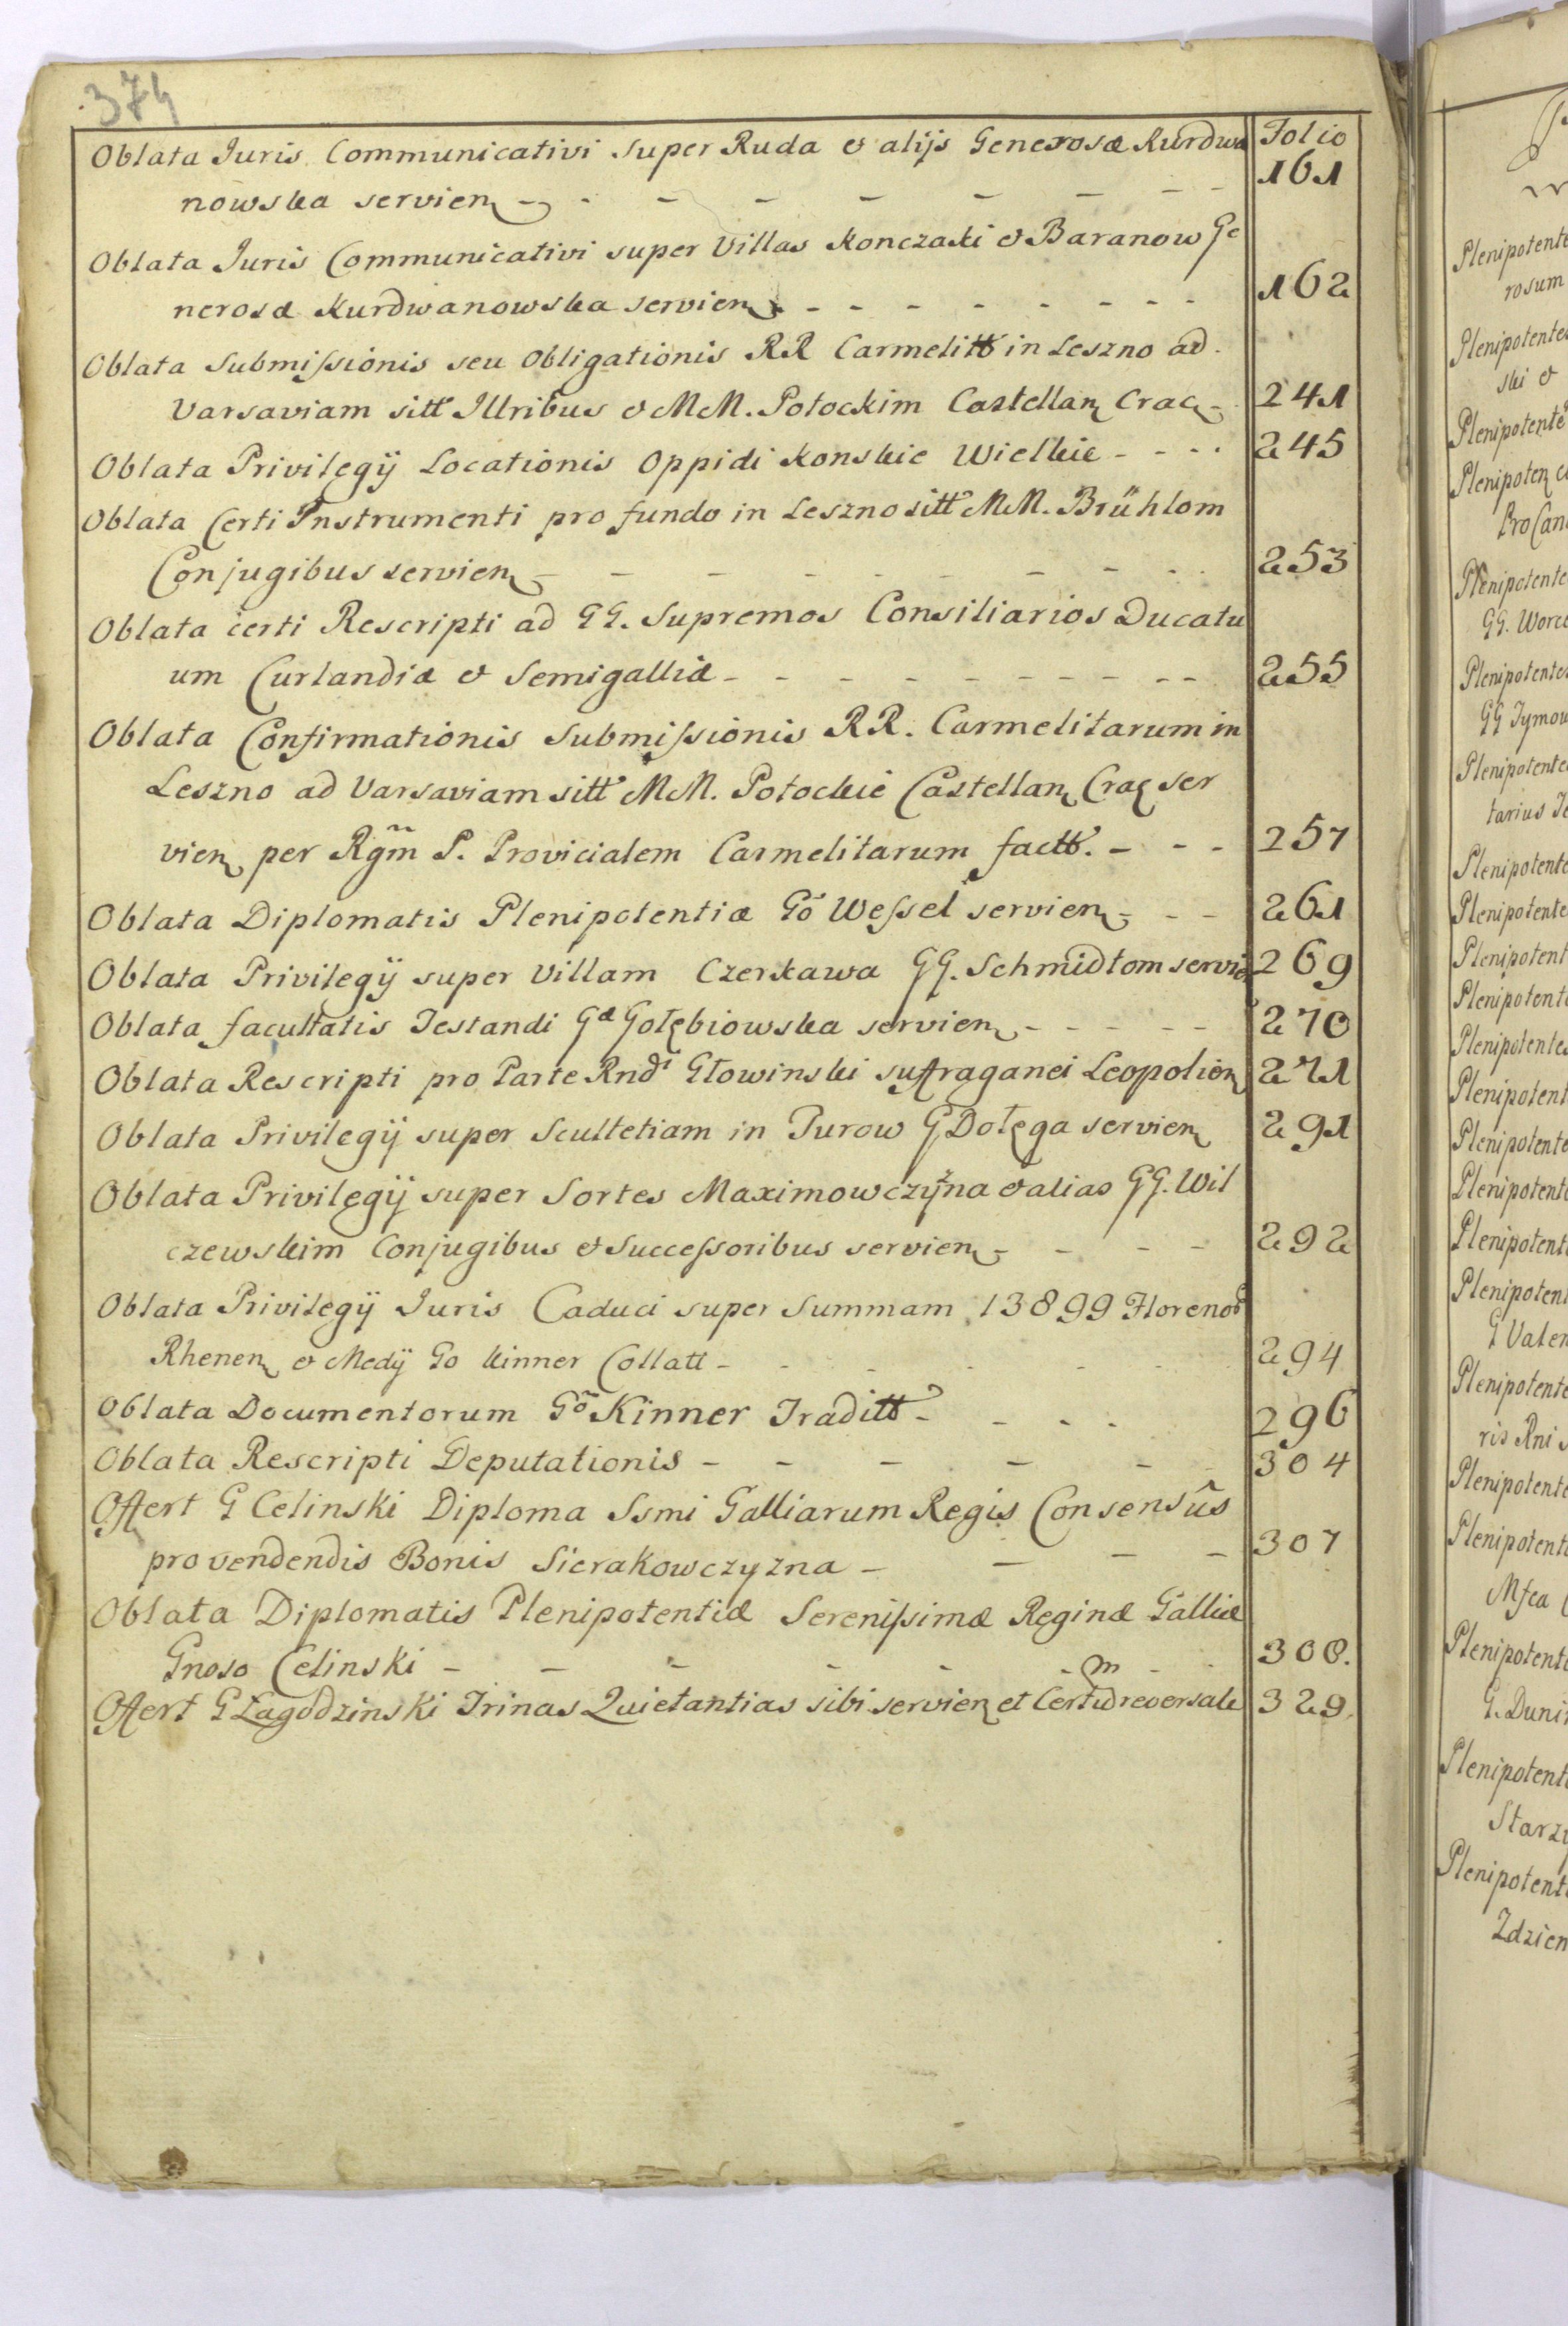 374
Oblata Juris Communicativi super Ruda & alijs Generosæ Kurdwa Folio
nowska servien - - - - - - - 161
Oblata Juris Communicativi super Villas Konczaki & Baranow Ge
nerosæ Kurdwanowska servien - - - - - - - 162
Oblata Submissionis seu Obligationis RR Carmelitt in Leszno ad
Varsaviam sitt Illribus & MM. Potockim Castellan Crac - 241
Oblata Privilegij Locationis Oppidi Konskie Wielkie - - - - 245
Oblata Certi Instrumenti pro fundo in Leszno sitt MM. Brühlom
Conjugibus servien - - - - - - - - 253
Oblata certi Rescripti ad GG. Supremos Consiliarios Ducatu
um Curlandiæ & Semigalliæ - - - - - - - - - 255
Oblata Confirmationis Submissionis RR. Carmelitarum in
Leszno ad Varsaviam sitt MM. Potockie Castellan Crac ser
vien per Rgm P. Provicialem Carmelitarum factt. - - - 257
Oblata Diplomatis Plenipotentiæ Go Wessel servien - - - 261
Oblata Privilegij super Villam Czerkawa GG. Schmidtom servie 269
Oblata facultatis Testandi Gæ Gołębiowska servien - - - - - 270
Oblata Rescripti pro Parte Rndi Głowinski suffraganei Leopolien 271
Oblata Privilegij super Scultetiam in Turow G Dołęga servien 291
Oblata Privilegij super Sortes Maximowczyzna & alias GG. Wil
czewskim Conjugibus & Successoribus servien - - - - 292
Oblata Privilegij Juris Caduci super Summam 13899 Florenor
Rhenen & Medij Go Kinner Collatt - - - - - 294
Oblata Documentorum Go Kinner Traditt - - - - 296
Oblata Rescripti Deputationis - - - - - 304
Offert G Celinski Diploma Ssmi Galliarum Regis Consensûs
pro vendendis Bonis Sierakowczyzna - - - - 307
Oblata Diplomatis Plenipotentiæ Serenissimæ Reginæ Galliæ
Gnoso Celinski - - - - - - - 308.
Offert G Łagodzinski Trinas Quietantias sibi servien et Certum reversale 329.
Plenipotente
rosum
Plenipotentes
ski &
Plenipotente
Plenipoten
Pro Can
Plenipotente
GG. Worce
Plenipotentes
GG Tymow
Plenipotente
tarius
Plenipotente
Plenipotente
Plenipotent
Plenipotente
Plenipotentes
Plenipotent
Plenipotente
Plenipotent
Plenipotent
Plenipotent
G Valen
Plenipotente
ris Rni
Plenipotente
Plenipotent
Mfca
Plenipotente
G. Dunin
Plenipotent
Starz
Plenipotent
Zdzien